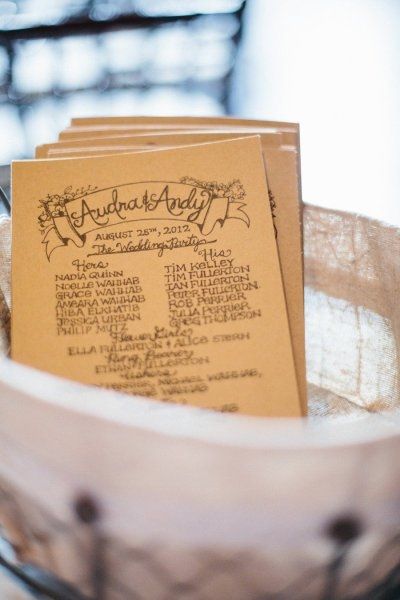 Audra & Andy
AUGUST 25TH, 2012
The Wedding Party
Hers
NADIA QUINN
NOELLE WAHHAB
GRACE WAHHAB
AMBARA WAHHAB
HIBA ELKHATIB
JESSICA URBAN
PHILIP MUTZ
His
TIM KELLEY
TIM FULLERTON
IAN FULLERTON
PETER FULLERTON
ROB PERRIER
JULIA PERRIER
GREG THOMPSON
Flower Girls
ELLA FULLERTON & ALICE STERN
Ring Bearer
ETHAN FULLERTON
Ushers
MICHAEL WAHHAB,
WAHHAB